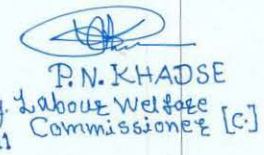 P.N. KHADSE
Labour Welfare
Commissioner [C.]